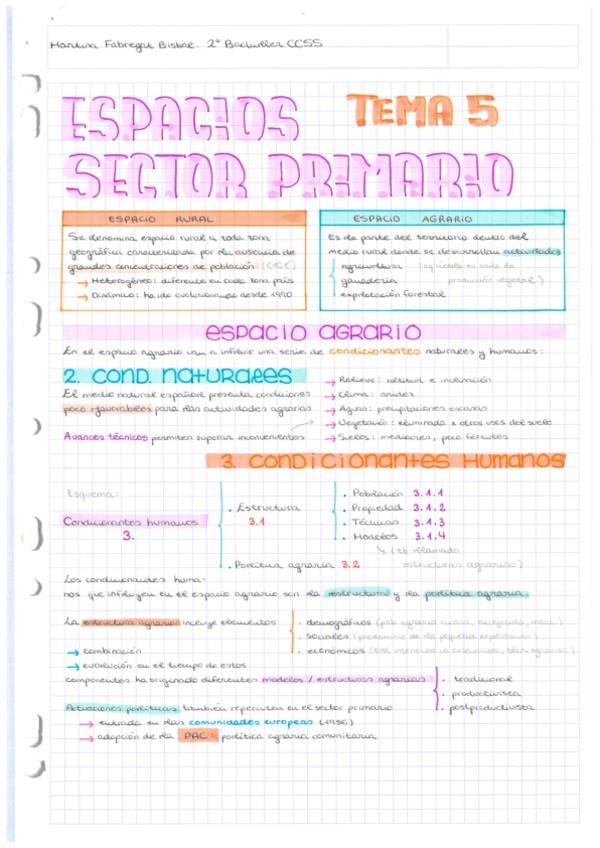 Martina Fabregat Bisbal. 2º Bachiller CCSS
ESPACIOS TEMA 5
SECTOR PRIMARIO
ESPACIO RURAL
Se denomina espacio rural a toda zona
geográfica caracterizada por la ausencia de
grandes concentraciones de población (<10K)
→ Heterogéneo: diferente en cada zona país
→ Dinámico: ha ido evolucionando desde 1990
ESPACIO AGRARIO
Es la parte del territorio dentro del
medio rural donde se desarrollan actividades
agricultura
ganadería producción vegetal)
explotación forestal
ESPACIO AGRARIO
En el espacio agrario van a influir una serie de condicionantes naturales y humanos:
2. COND. NATURALES
El medio natural español presenta condiciones
poco favorables para las actividades agrarias
Avances técnicos permiten superar inconvenientes
→ Relieve: altitud e inclinación
→ Clima: aridez
→ Agua: precipitaciones escasas
→ Vegetación: eliminada x otros usos del suelo
→ Suelos: mediocres, poco fértiles
3. CONDICIONANTES HUMANOS
Esquema:
Condicionantes humanos
3.
. Estructura
3.1
. Población 3.1.1
. Propiedad 3.1.2
. Técnicas 3.1.3
. Modelos 3.1.4
↳ (tb llamado
estructuras agrarias)
. Política agraria 3.2
Los condicionantes huma-
nos que influyen en el espacio agrario son la estructura y la política agraria.
La estructura agraria incluye elementos
. demográficos (pob agraria
. sociales (predominio de la pequeña explotación)
. económicos
→ combinación
→ evolución en el tiempo de estos
componentes ha originado diferentes modelos / estructuras agrarias
. tradicional
. productivista
. postproductivista
Actuaciones políticas también repercuten en el sector primario
→ entrada en las comunidades europeas (1986)
→ adopción de la PAC: política agraria comunitaria